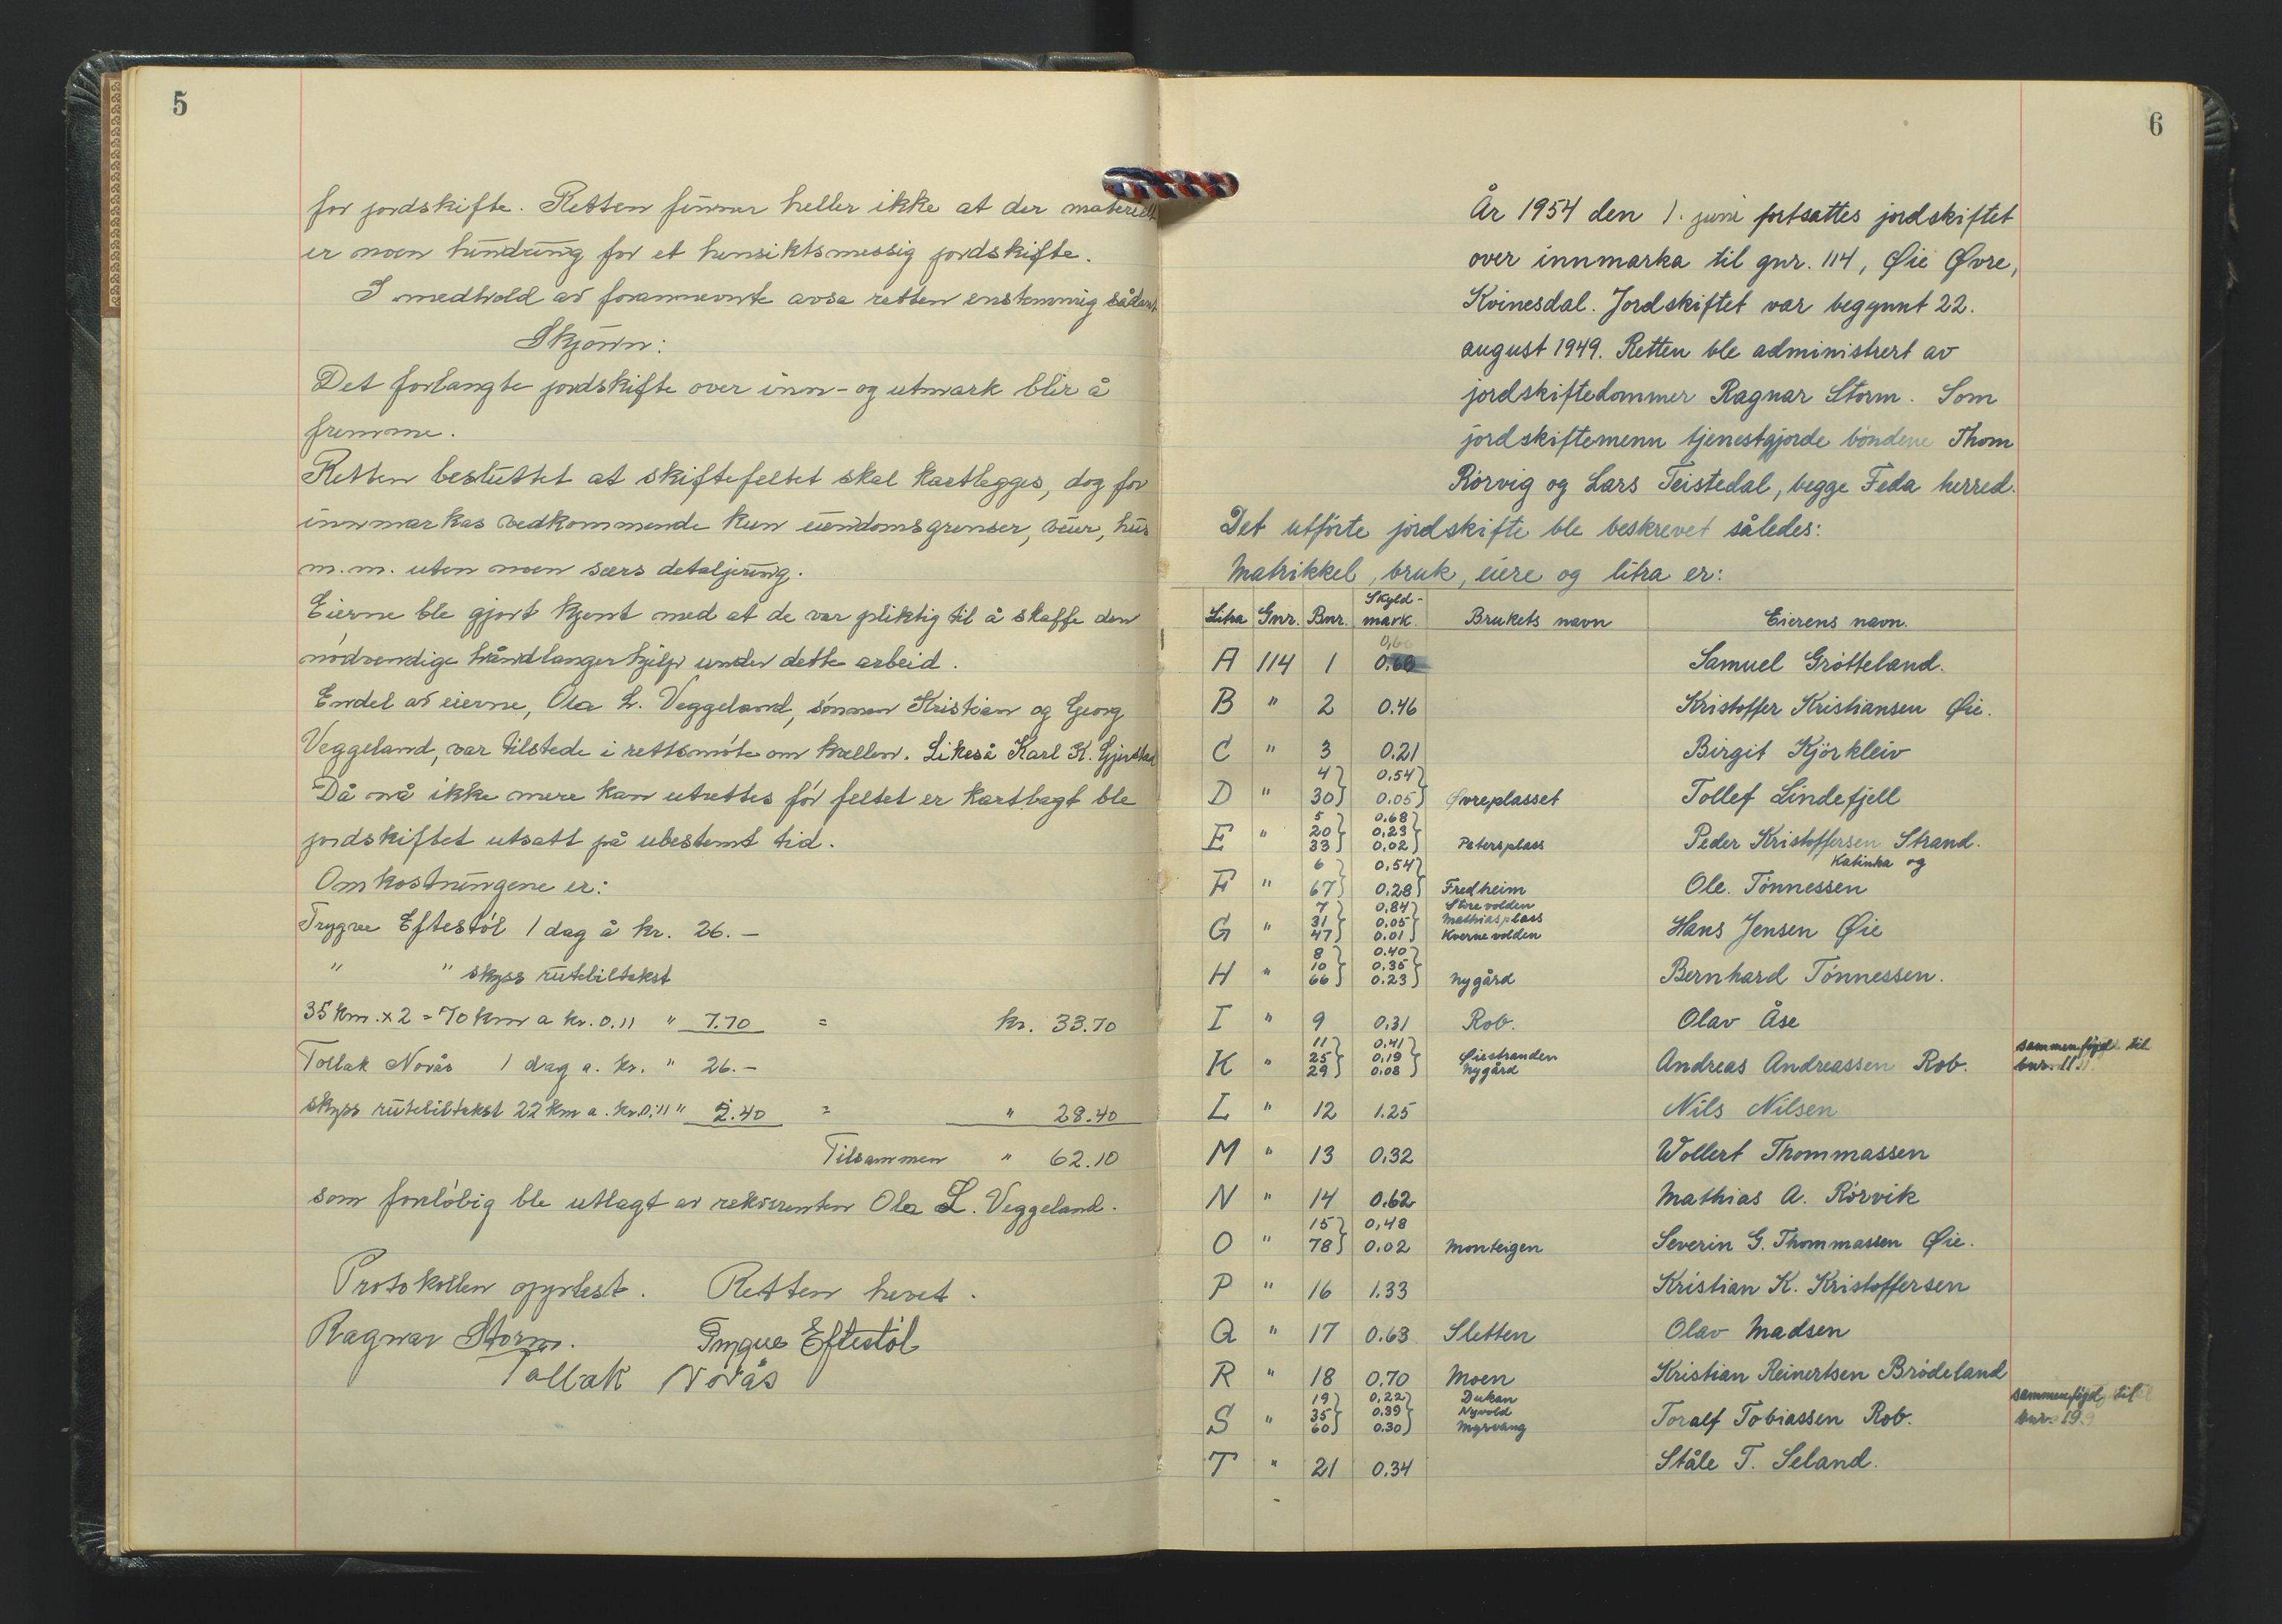 5
for jordskifte. Retten finner heller ikke at der materielt
er noen hindring for et hensiktsmessig jordskifte.
I medhold av forannevnte avsa retten enstemmig sådant
Skjønn:
Det forlangte jordskifte over inn- og utmark blir å
fremme.
Retten besluttet at skiftefeltet skal kartlegges, dog for
innmarkas vedkommende kun eiendomsgrenser, veier, hus
m.m. uten noen særs detaljering.
Eierne ble gjort kjent med at de var pliktig til å skaffe den
nødvendige håndlangerhjelp under dette arbeid.
Endel av eierne, Ola L. Veggeland, sønnen Kristian og Georg
Veggeland, var tilstede i rettsmøte om kvellen. Likeså Karl K. Gjerstad
Då nå ikke mere kan utrettes før feltet er kartlagt ble
jordskiftet utsatt på ubestemt tid.
Omkostningene er:
Trygve Eftestøl 1 dag à kr. 26.—
" " skyss rutebiltakst
35 km. x 2 = 70 km a kr. 0.11 " 7.70 = kr. 33.70
Tollak Novås 1 dag a. kr. " 26.—
skyss rutebiltakst 22 km a. kr. 0.11 " 2.40 = " 28.40
Tilsammen " 62.10
som foreløbig ble utlagt av rekvirenten Ola L. Veggeland.
Protokollen opplest. Retten hevet.
Ragnar Storm. Trygve Eftestøl
Tallak Novås
6
År 1954 den 1. juni fortsattes jordskiftet
over innmarka til gnr. 114, Øie Øvre,
Kvinesdal. Jordskiftet var begynnt 22.
august 1949. Retten ble administrert av
jordskiftedommer Ragnar Storm. Som
jordskiftemenn tjenestgjorde bøndene Thom
Rørvig og Lars Teistedal, begge Feda herred.
Det utførte jordskifte ble beskrevet således:
Matrikkel, bruk, eiere og litra er:
Litra Gnr. Bnr. Skyld-mark. Brukets navn Eierens navn.
0,66
A 114 1 0.68 Samuel Grøtteland.
B " 2 0.46 Kristoffer Kristiansen Øie.
C " 3 0.21 Birgit Kjørkleiv
4 0.54
D " 30 0.05 Øvreplasset Tollef Lindefjell
5 0.68
20 0.23
E " 33 0.02 Petersplass Peder Kristoffersen Strand.
6 0.54 Katinka og
F " 67 0.28 Fredheim Ole. Tønnessen
7 0.84 Store volden
31 0.05 Mathiasplass
G " 47 0.01 Kvernevolden Hans Jensen Øie
8 0.40
10 0.35
H " 66 0.23 Nygård Bernhard Tønnessen.
I " 9 0.31 Rob. Olav Åse
11 0.41
25 0.19 Øiestranden sammenføyd til
K " 29 0.08 Nygård Andreas Andreassen Rob. bnr. 11
L " 12 1.25 Nils Nilsen
M " 13 0.32 Wollert Thommassen
N " 14 0.62 Mathias A. Rørvik
15 0.48
O " 78 0.02 Monteigen Severin G. Thommassen Øie.
P " 16 1.33 Kristian K. Kristoffersen
Q " 17 0.63 Sletten Olav Madsen
R " 18 0.70 Moen Kristian Reinertsen Brødeland
19 0.22 Dukan sammenføyd til
35 0.39 Nyvold bnr. 19
S " 60 0.30 Myrvang Toralf Tobiassen Rob.
T " 21 0.34 Ståle T. Seland.